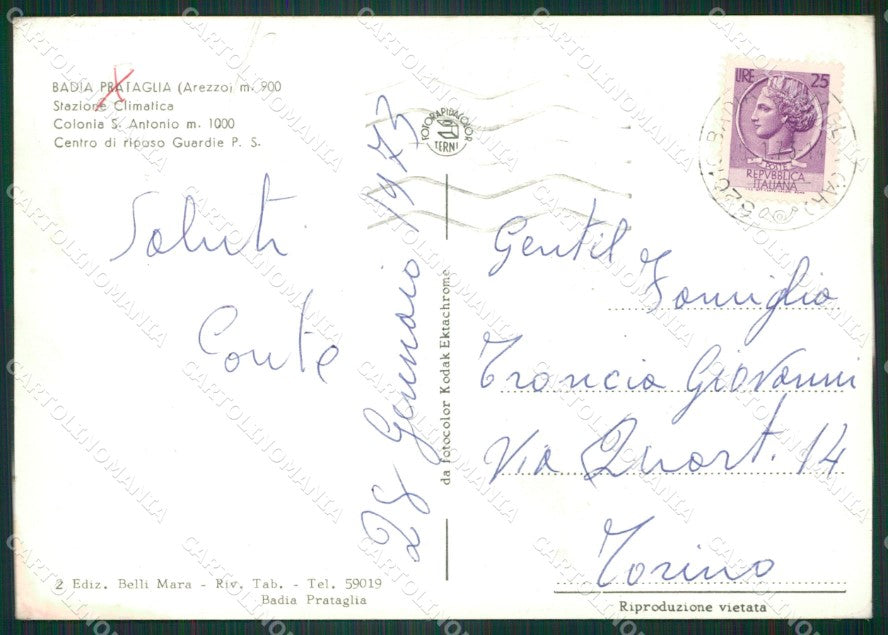 BADIA PRATAGLIA (Arezzo) m. 900
Stazione Climatica
Colonia S. Antonio m. 1000
Centro di riposo Guardie P. S.
Saluti
Conte
28 Gennaio 1973
FOTORAPIDACOLOR
TERNI
da fotocolor Kodak Ektachrome
LIRE 25
POSTE
REPVBBLICA
ITALIANA
Gentil
Famiglia
Troncia Giovanni
Via Quart. 14
Torino
2 Ediz. Belli Mara - Riv. Tab. - Tel. 59019
Badia Prataglia
Riproduzione vietata
CARTOLINOMANIA